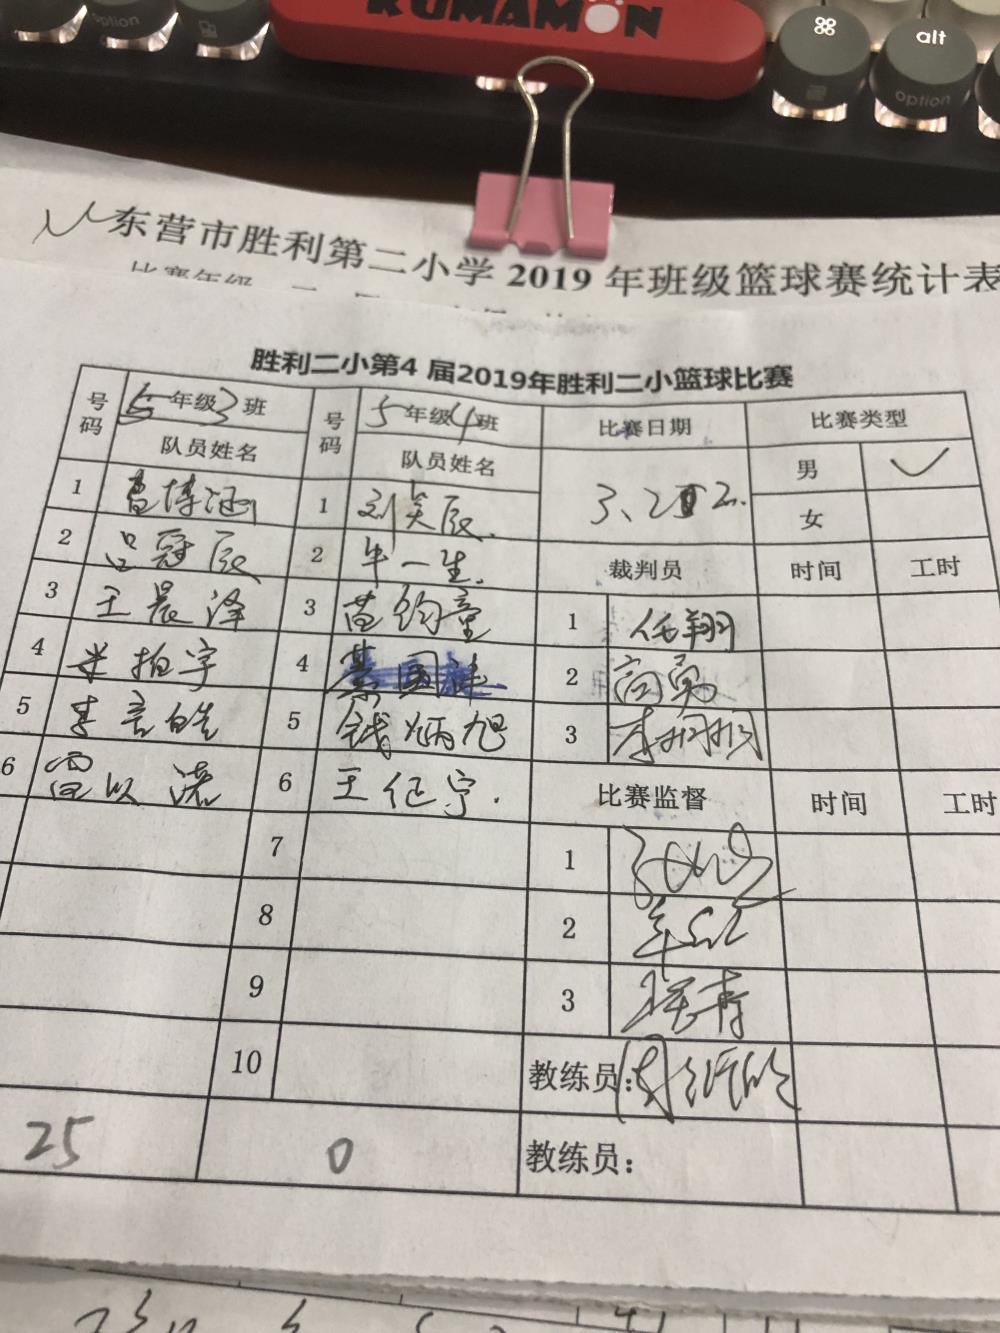 KUMAMON
⌘
alt
option
option
东营市胜利第二小学 2019 年班级篮球赛统计表
比赛年级
胜利二小第4 届2019年胜利二小篮球比赛
号码 5年级3班 号码 5年级4班 比赛日期 比赛类型
队员姓名 队员姓名 男 ✓
1 曹博涵 1 刘笑辰. 女
2 吕冠辰 2 牛一生. 裁判员 时间 工时
3 王晨泽 3 苗钧童 1 任翔
4 米柏宇 4 2 高勇
5 李言皓 5 钱炳旭 3
6 雷以诺 6 王任宇. 比赛监督 时间 工时
7 1
8 2
9 3
10 教练员:
25 0 教练员: